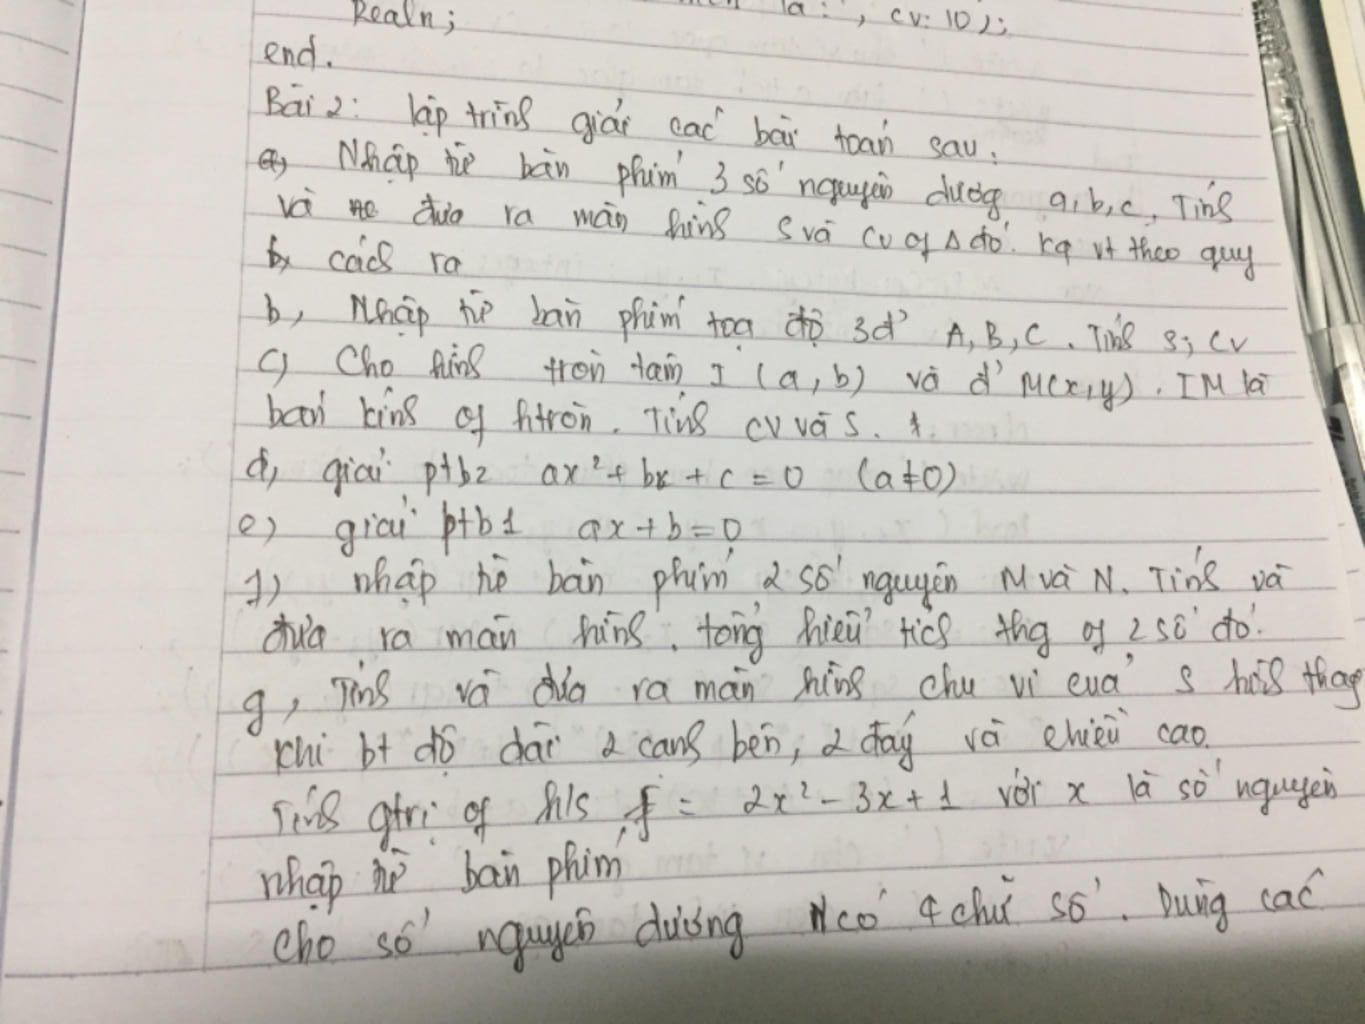 Realn; la: , cv: 10);
end.
Bài 2: lập trình giải các bài toán sau:
a, Nhập từ bàn phím 3 số nguyên dương a, b, c, Tính
và đưa ra màn hình S và CV of Δ đó. kq vt theo quy
cách ra
b, Nhập từ bàn phím toạ độ 3đ' A, B, C. Tính S; CV
c) Cho hình tròn tâm I (a, b) và đ' M(x, y). IM là
bán kính of htròn. Tính CV và S.
d, giải ptb2 ax² + bx + c = 0 (a ≠ 0)
e) giải ptb1 ax + b = 0
f) nhập từ bàn phím 2 số nguyên M và N. Tính và
đưa ra màn hình. tổng hiệu tích thg of 2 số đó.
g, Tính và đưa ra màn hình chu vi của S hình thag
khi bt độ dài 2 cạnh bên, 2 đáy và chiều cao.
Tính gtrị of h/s f = 2x² - 3x + 1 với x là số nguyên
nhập từ bàn phím
cho số nguyên dương N có 4 chữ số. Dùng các